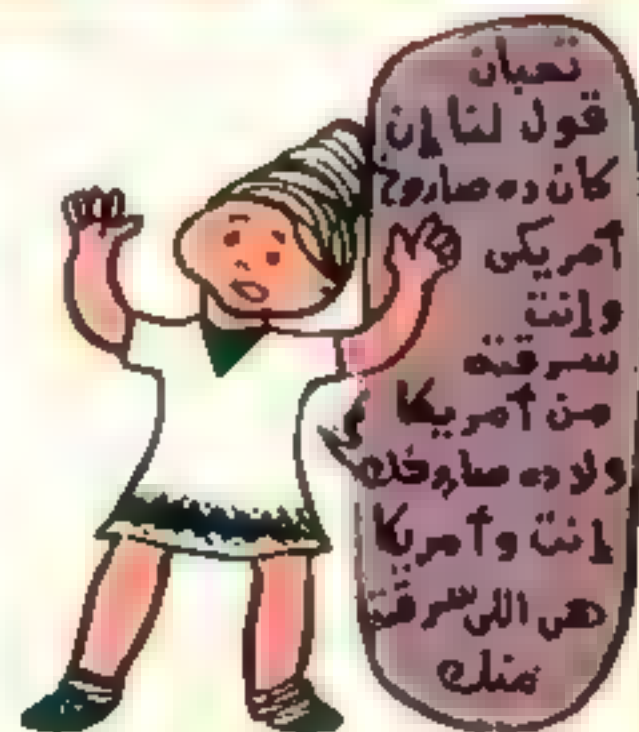 تعبان
قول لنا إن
كان ده صاروخ
أمريكى
وإنت
سرقته
من أمريكا
ولا ده صاروخك
إنت وأمريكا
هى اللى سرقته
منك